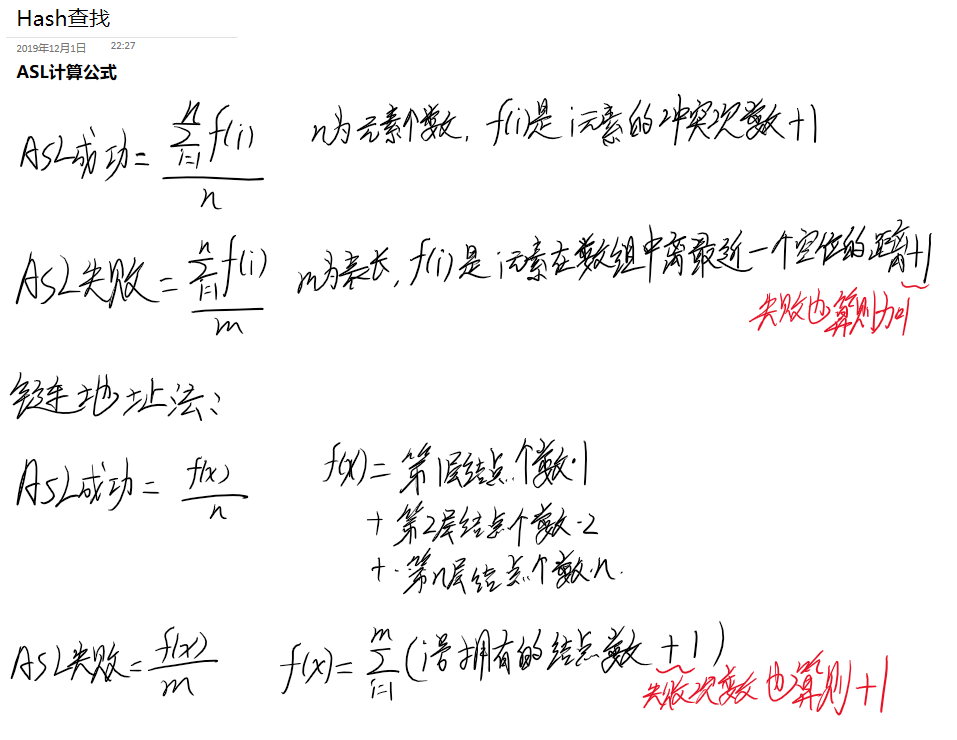 Hash查找
2019年12月1日 22:27
ASL计算公式
ASL成功 = \frac{\sum_{i=1}^{n} f(i)}{n} n为元素个数, f(i)是i元素的冲突次数+1
ASL失败 = \frac{\sum_{i=1}^{n} f(i)}{m} m为表长, f(i)是i元素在数组中离最近一个空位的距离+1
失败也算则为+1
链地址法:
ASL成功 = \frac{f(x)}{n} f(x) = 第1层结点个数·1
+ 第2层结点个数·2
+·第n层结点个数·n.
ASL失败 = \frac{f(x)}{m} f(x) = \sum_{i=1}^{m} (i号拥有的结点数 + 1)
失败次数也算则+1